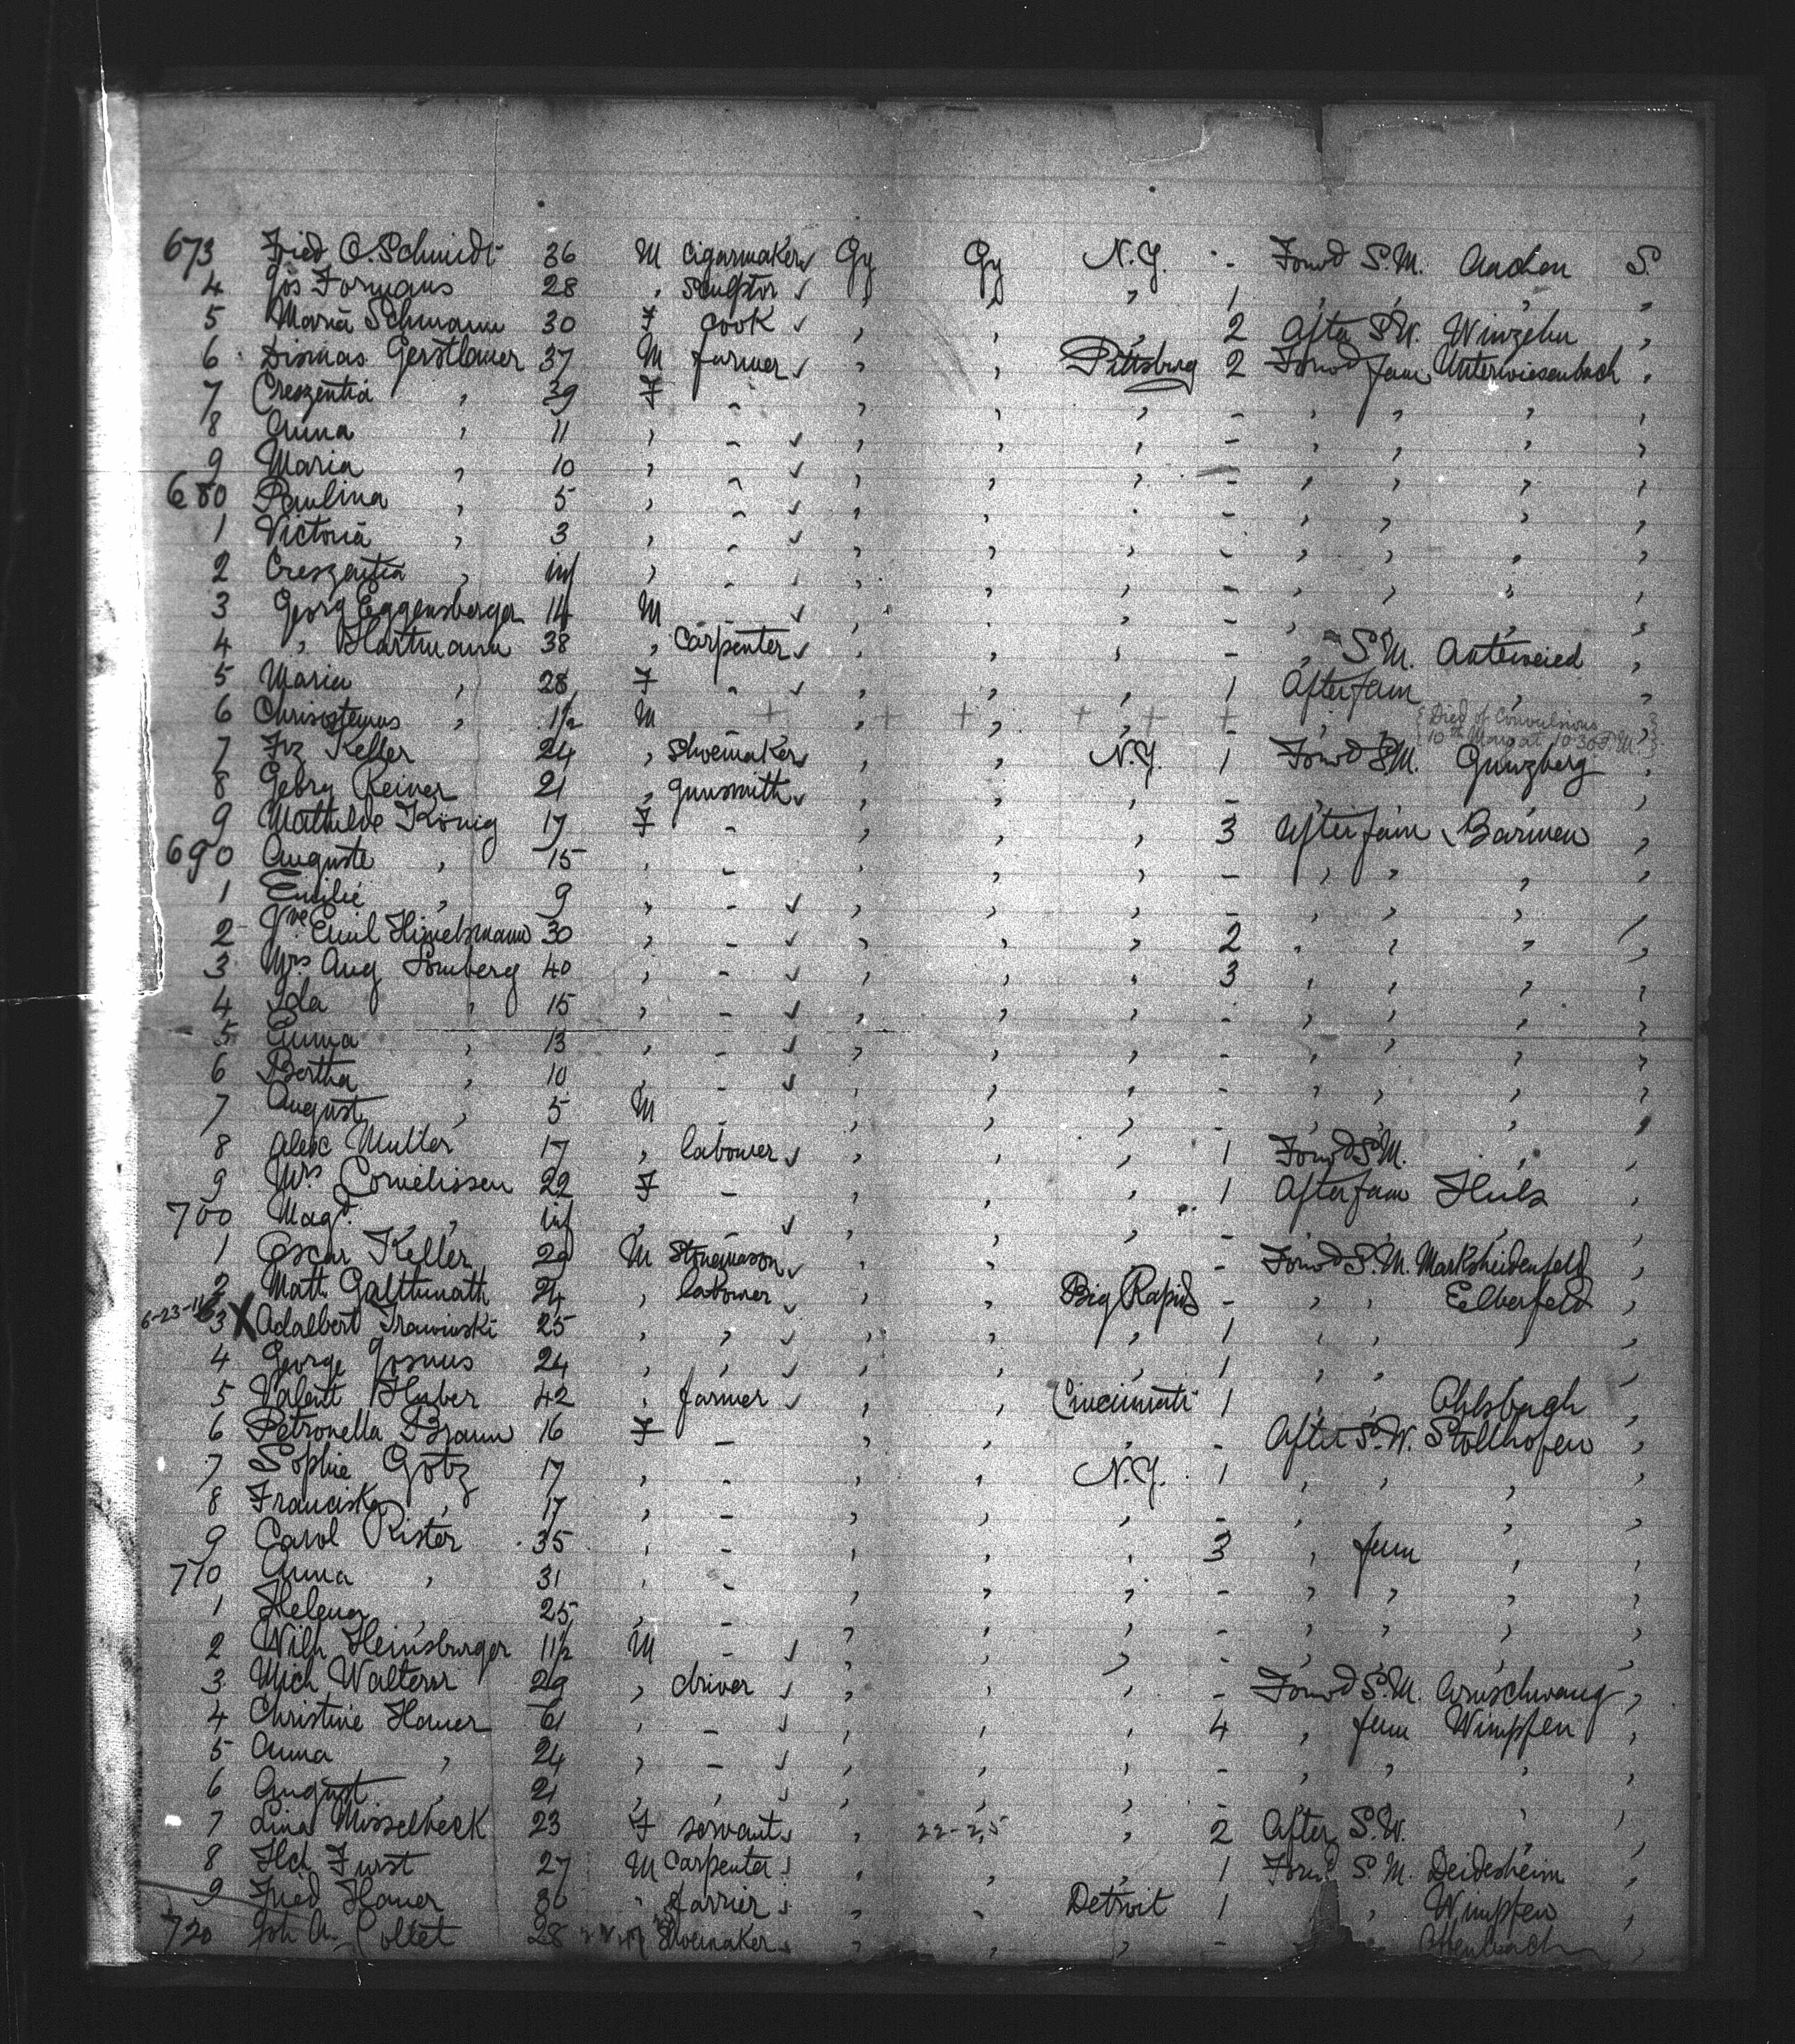 673 Fried O. Schmidt 36 M Cigarmaker ✓ Gy Gy N.Y. - Forw'd S.M. Aachen S.
4 Jos Formans 28 , Sculptor ✓ , , , 1 , , , ,
5 Maria Schmann 30 F Cook ✓ , , , 2 After S.W. Winzeln ,
6 Dismas Gerstlauer 37 M farmer ✓ , , Pittsburg 2 Forw'd fam Unterwiesenbach ,
7 Creszentia , 39 F - , , , - , , , ,
8 Anna , 11 , - ✓ , , , - , , , ,
9 Maria , 10 , - ✓ , , , - , , , ,
680 Paulina , 5 , - ✓ , , , - , , , ,
1 Victoria , 3 , - ✓ , , , - , , , ,
2 Creszentia , inf , - , , , - , , , ,
3 Georg Eggensberger 14 M - ✓ , , , - , , , ,
4 , Hartmann 38 , Carpenter ✓ , , , - , S.M. ,
5 Maria , 28 F - ✓ , , , 1 After fam , ,
6 , 1 1/2 M + + + + + + , , Died of Convulsions
10th May at 10 30 P.M.
7 Frz Keller 24 , Shoemaker ✓ , , N.Y. 1 Forw'd S.M. Gunzberg ,
8 Georg Reiner 21 , gunsmith ✓ , , , - , , , ,
9 Mathilde König 17 F - , , , 3 After fam Barmen ,
690 Auguste , 15 , - , , , - , , , ,
1 Emilie , 9 , - ✓ , , , - , , , ,
2 Emil Himelsmann 30 , - ✓ , , , 2 , , , ,
3 Mrs Aug Somberg 40 , - ✓ , , , 3 , , , ,
4 Ida , 15 , - ✓ , , , - , , , ,
5 Emma , 13 , - ✓ , , , - , , , ,
6 Bertha , 10 , - ✓ , , , - , , , ,
7 August , 5 M , , , - , , , ,
8 Alex Muller 17 , labourer ✓ , , , 1 Forw'd S.M. , ,
9 Mrs Cornelissen 22 F - , , , 1 After fam Huls ,
700 Magd. , inf , - ✓ , , , - , , , ,
1 Oscar Keller 29 M Stonemason ✓ , , , - Forw'd S.M. Marksheidenfeld ,
2 Matt 24 , labourer ✓ , , Big Rapids - , , Eelberfeld ,
6-23-11 3 X Adalbert Trawinski 25 , , ✓ , , , 1 , , ,
4 George Josnus 24 , , ✓ , , , 1 , , ,
5 Valent Huber 42 , farmer ✓ , , Cincinnati 1 , , Ohlsbach ,
6 Petronella Braun 16 F - , , , - After S.W. Stollhofen ,
7 Sophie Götz 17 , - , , N.Y. 1 , , , ,
8 Franciska , 17 , - , , , - , , , ,
9 Carol Rister 35 , - , , , 3 , fam , ,
710 Anna , 31 , - , , , - , , , ,
1 Helena , 25 , - , , , - , , , ,
2 Wilh Heinsburger 11 1/2 M - ✓ , , , - , , , ,
3 Mich Walterer 29 , driver ✓ , , , - Forw'd S.M. Arnschwang ,
4 Christine Hauer 61 , - ✓ , , , 4 , fam Wimpfen ,
5 Anna , 24 , - ✓ , , , - , , , ,
6 August , 21 , , ✓ , , , - , , , ,
7 Lina Misselbeck 23 F servant ✓ , 22-25 , 2 After S.W. ,
8 Hch Furst 27 M Carpenter ✓ , , , 1 Forw'd S.M. Deidesheim ,
9 Fried Hauer 30 , farrier ✓ , , Detroit 1 , Wimpfen ,
720 Joh A. Collet 28 Shoemaker ✓ , , , - Offenbach ,